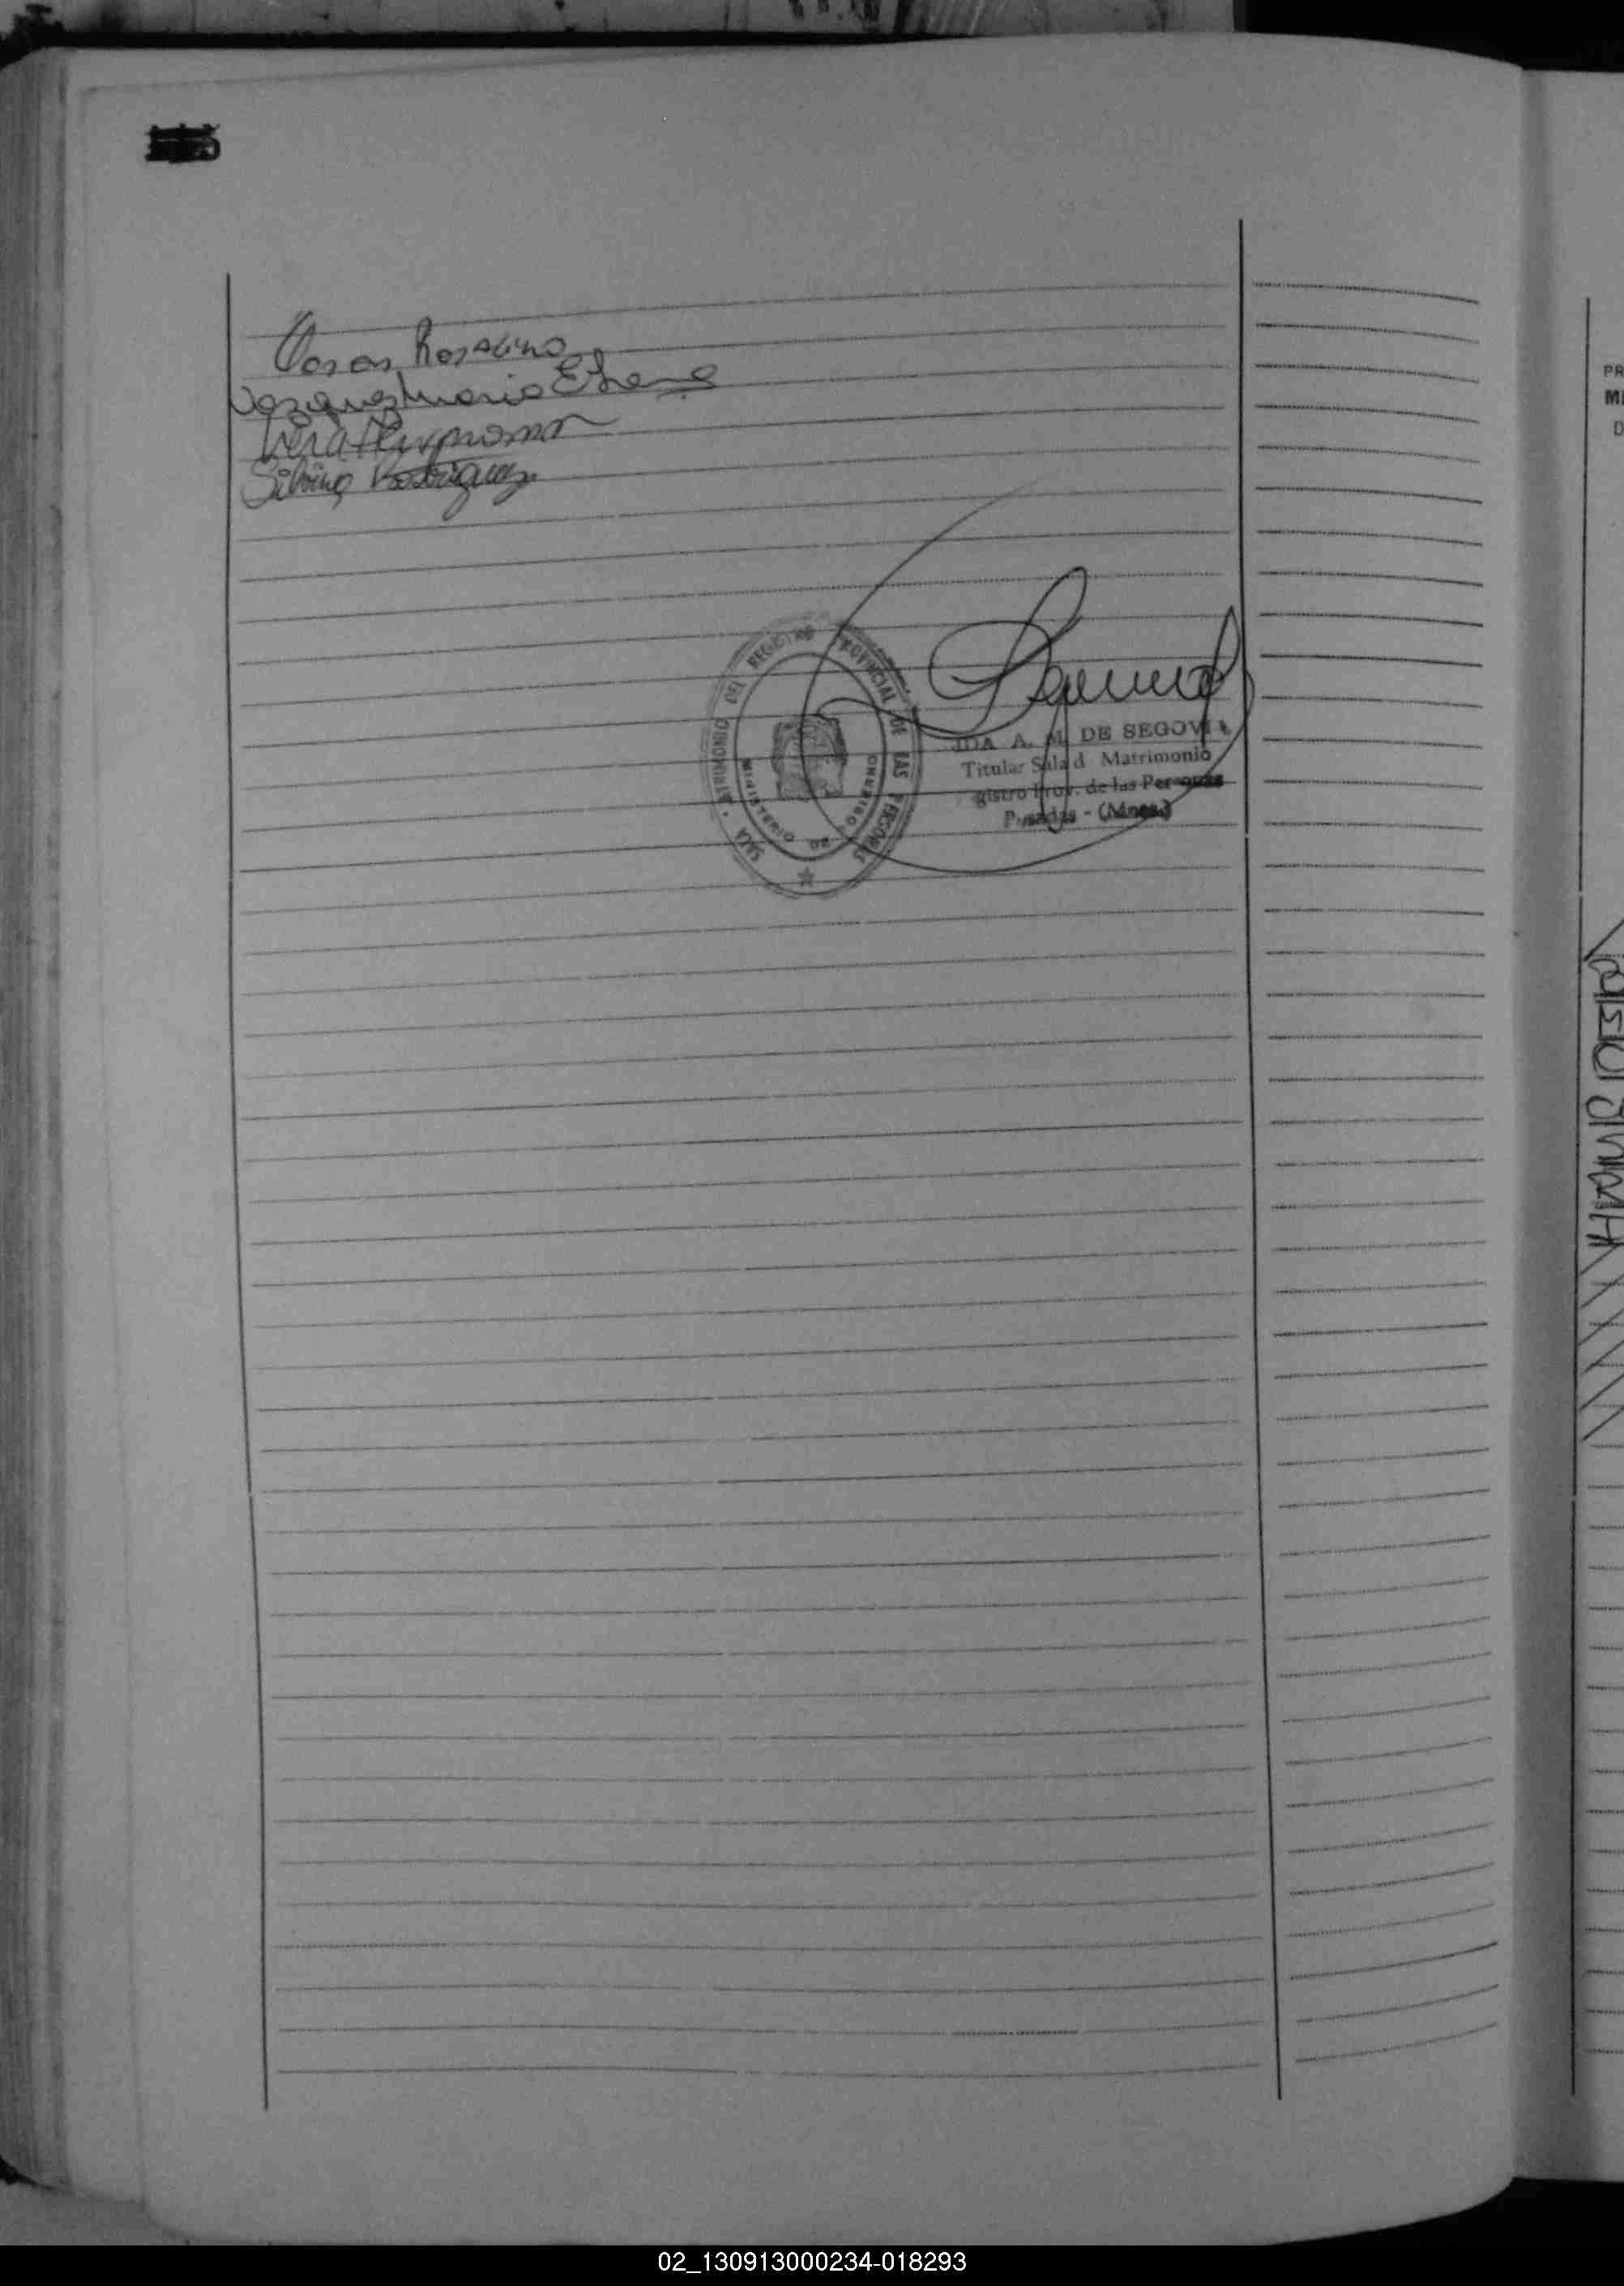 Rosalino
Vazquez Maria Elena
Vera
Silvina Rodriguez
SALA MATRIMONIO DEL REGISTRO PROVINCIAL DE LAS PERSONAS
MINISTERIO DE GOBIERNO
IDA A. M. DE SEGOVIA
Titular Sala d Matrimonio
gistro Prov. de las Personas
Posadas - (Mnes.)
PR
MI
D
02_130913000234-018293